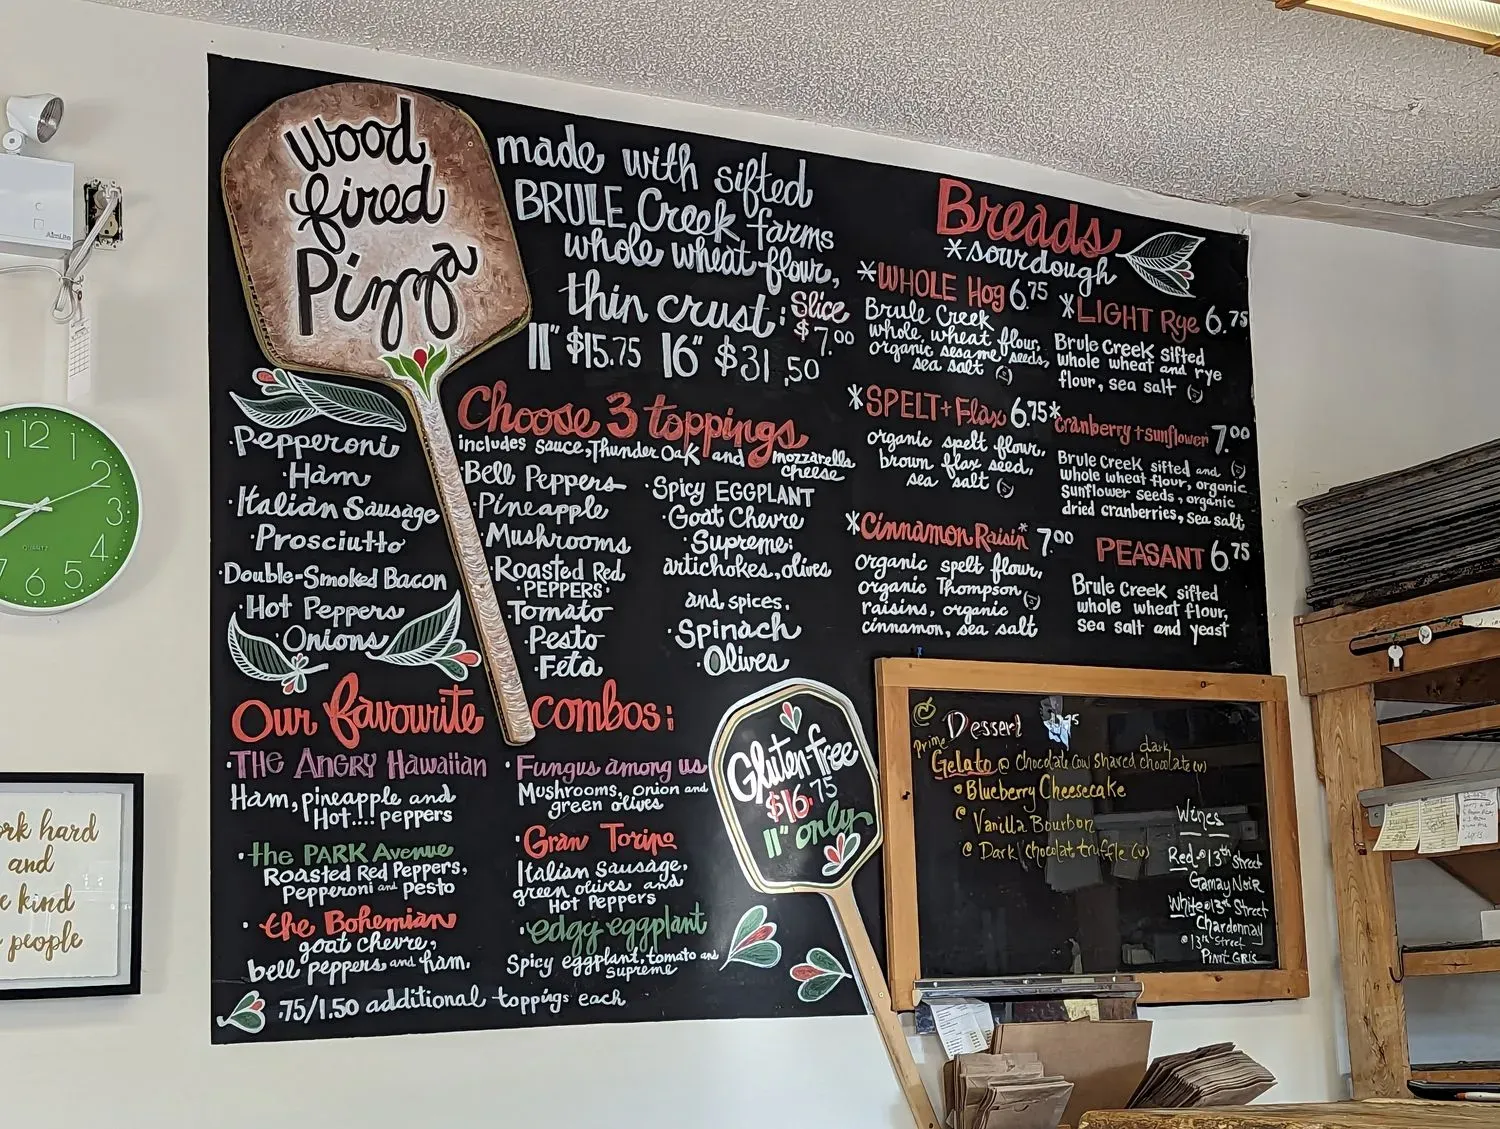 wood
fired
Pizza
made with sifted
BRULE Creek farms
whole wheat flour,
thin crust:
Slice
$7.00
11" $15.75 16" $31.50
Choose 3 toppings
includes sauce, Thunder Oak and mozzarella
cheese
Pepperoni
Ham
Italian Sausage
Prosciutto
Double-Smoked Bacon
Hot Peppers
Onions
Bell Peppers
Pineapple
Mushrooms
Roasted Red
PEPPERS
Tomato
Pesto
Feta
Spicy EGGPLANT
Goat Chevre
Supreme:
artichokes, olives
and spices.
Spinach
Olives
Our favourite combos:
THE ANGRY Hawaiian
Ham, pineapple and
Hot..!! peppers
the PARK Avenue
Roasted Red Peppers,
Pepperoni and Pesto
the Bohemian
goat chevre,
bell peppers and ham.
Fungus among us
Mushrooms, onion and
green olives
Gran Torino
Italian Sausage,
green olives and
Hot Peppers
edgy eggplant
Spicy eggplant, tomato and
supreme
.75/1.50 additional toppings each
Gluten-free
$16.75
11" only
Breads
*sourdough
*WHOLE Hog 6.75
Brule Creek
whole wheat flour,
organic sesame seeds,
sea salt
*LIGHT Rye 6.75
Brule Creek sifted
whole wheat and rye
flour, sea salt
*SPELT + Flax 6.75
organic spelt flour,
brown flax seed,
sea salt
*cranberry + sunflower 7.00
Brule Creek sifted and
whole wheat flour, organic
sunflower seeds, organic
dried cranberries, sea salt
*Cinnamon Raisin* 7.00
organic spelt flour,
organic Thompson
raisins, organic
cinnamon, sea salt
PEASANT 6.75
Brule Creek sifted
whole wheat flour,
sea salt and yeast
Dessert
Prime
Gelato @ Chocolate Cow shared dark chocolate (v)
Blueberry Cheesecake
@ Vanilla Bourbon
@ Dark Chocolate truffle (v)
Wines
Red @ 13th Street
Gamay Noir
White @ 13th Street
Chardonnay
@ 13th Street
Pinot Gris
12
1
2
3
4
5
6
QUARTZ
ork hard
and
e kind
people